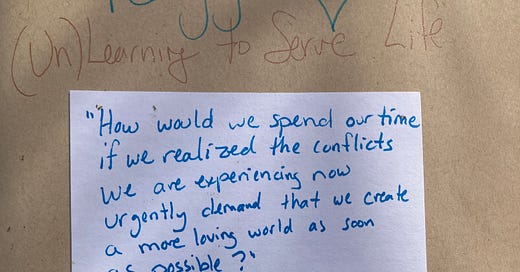 (Un)Learning to Serve Life
"How would we spend our time
if we realized the conflicts
we are experiencing now
urgently demand that we create
a more loving world as soon
as possible?"